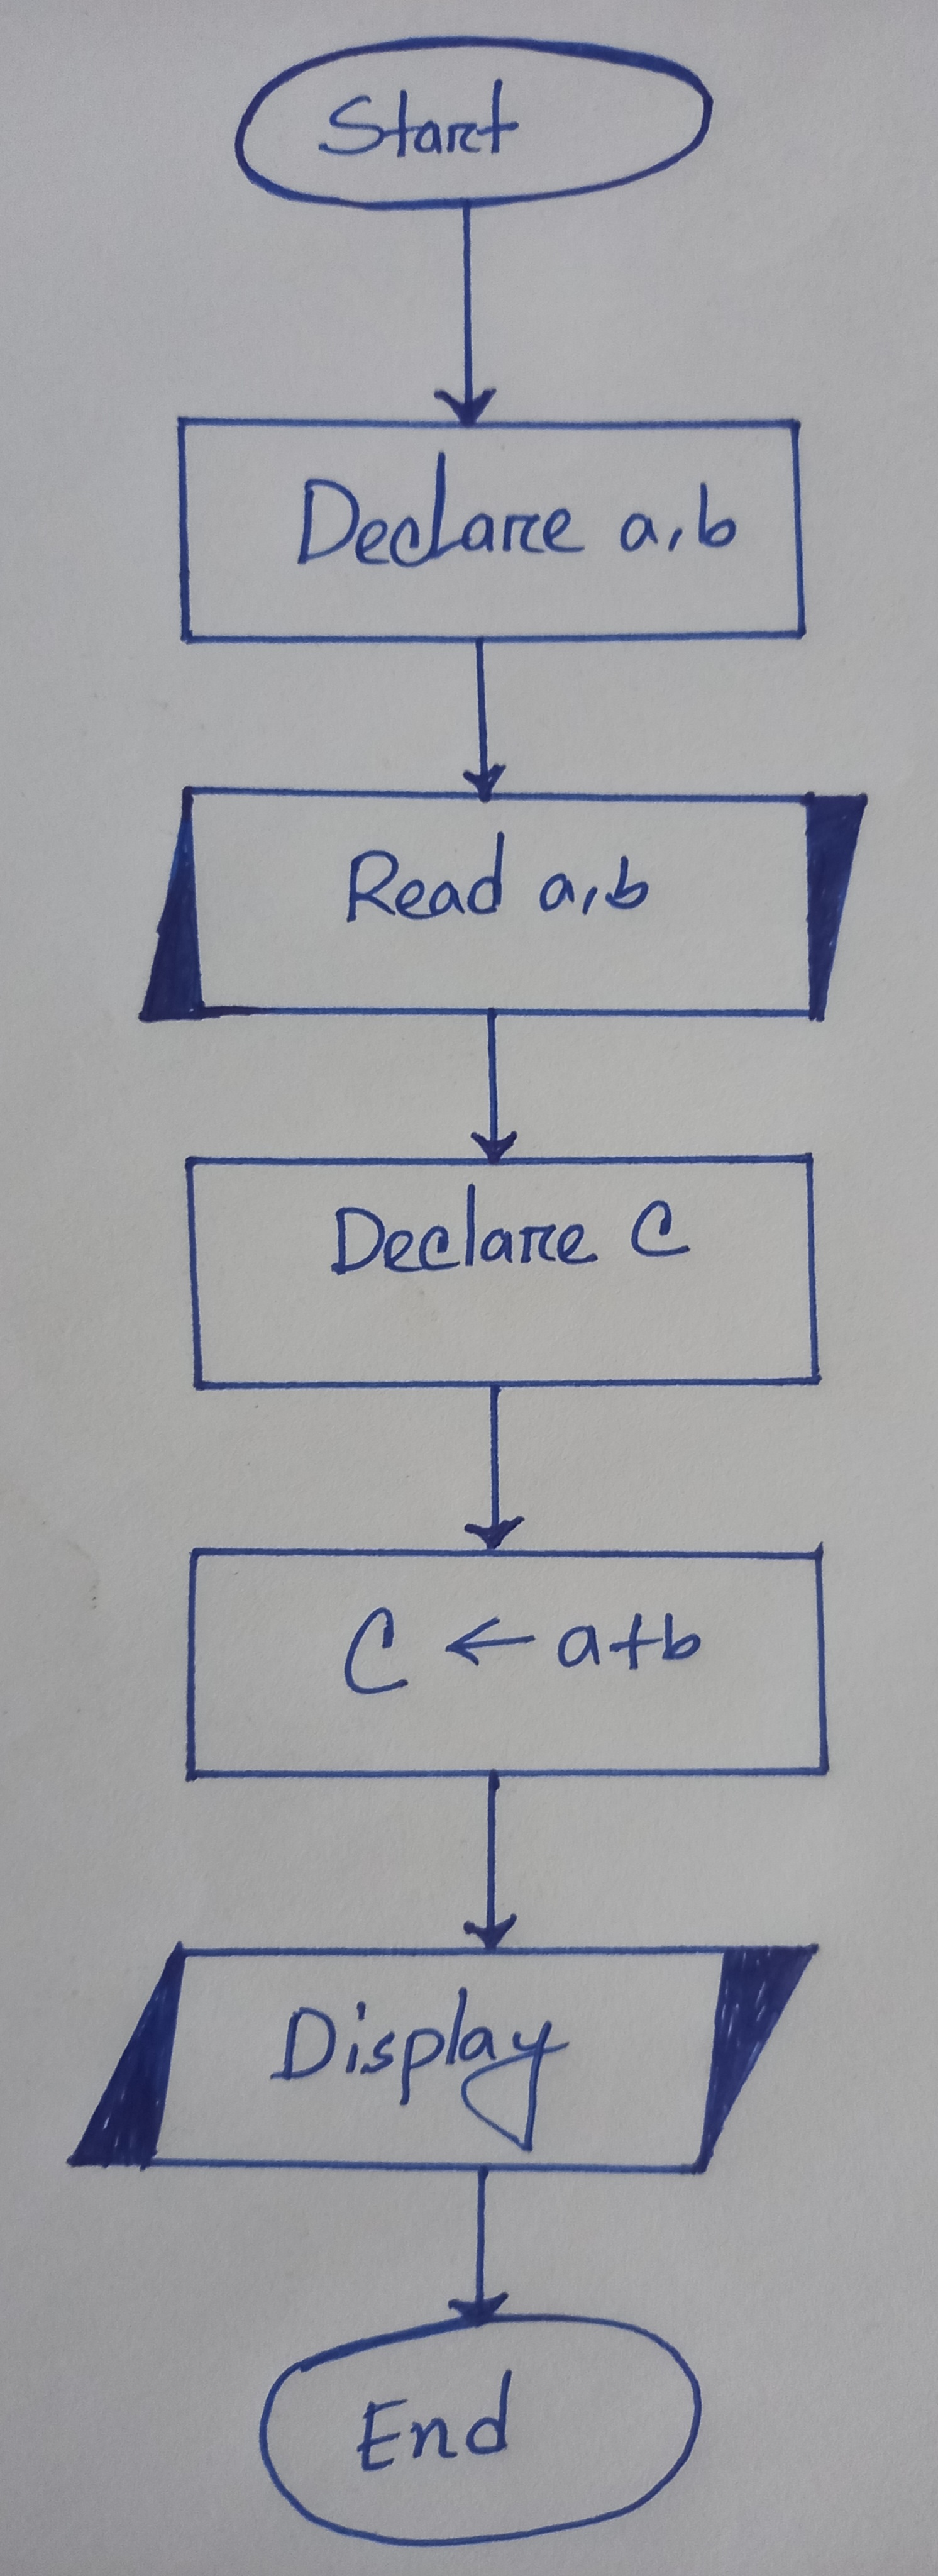 Start
Declare a,b
Read a,b
Declare C
C ← a+b
Display
End